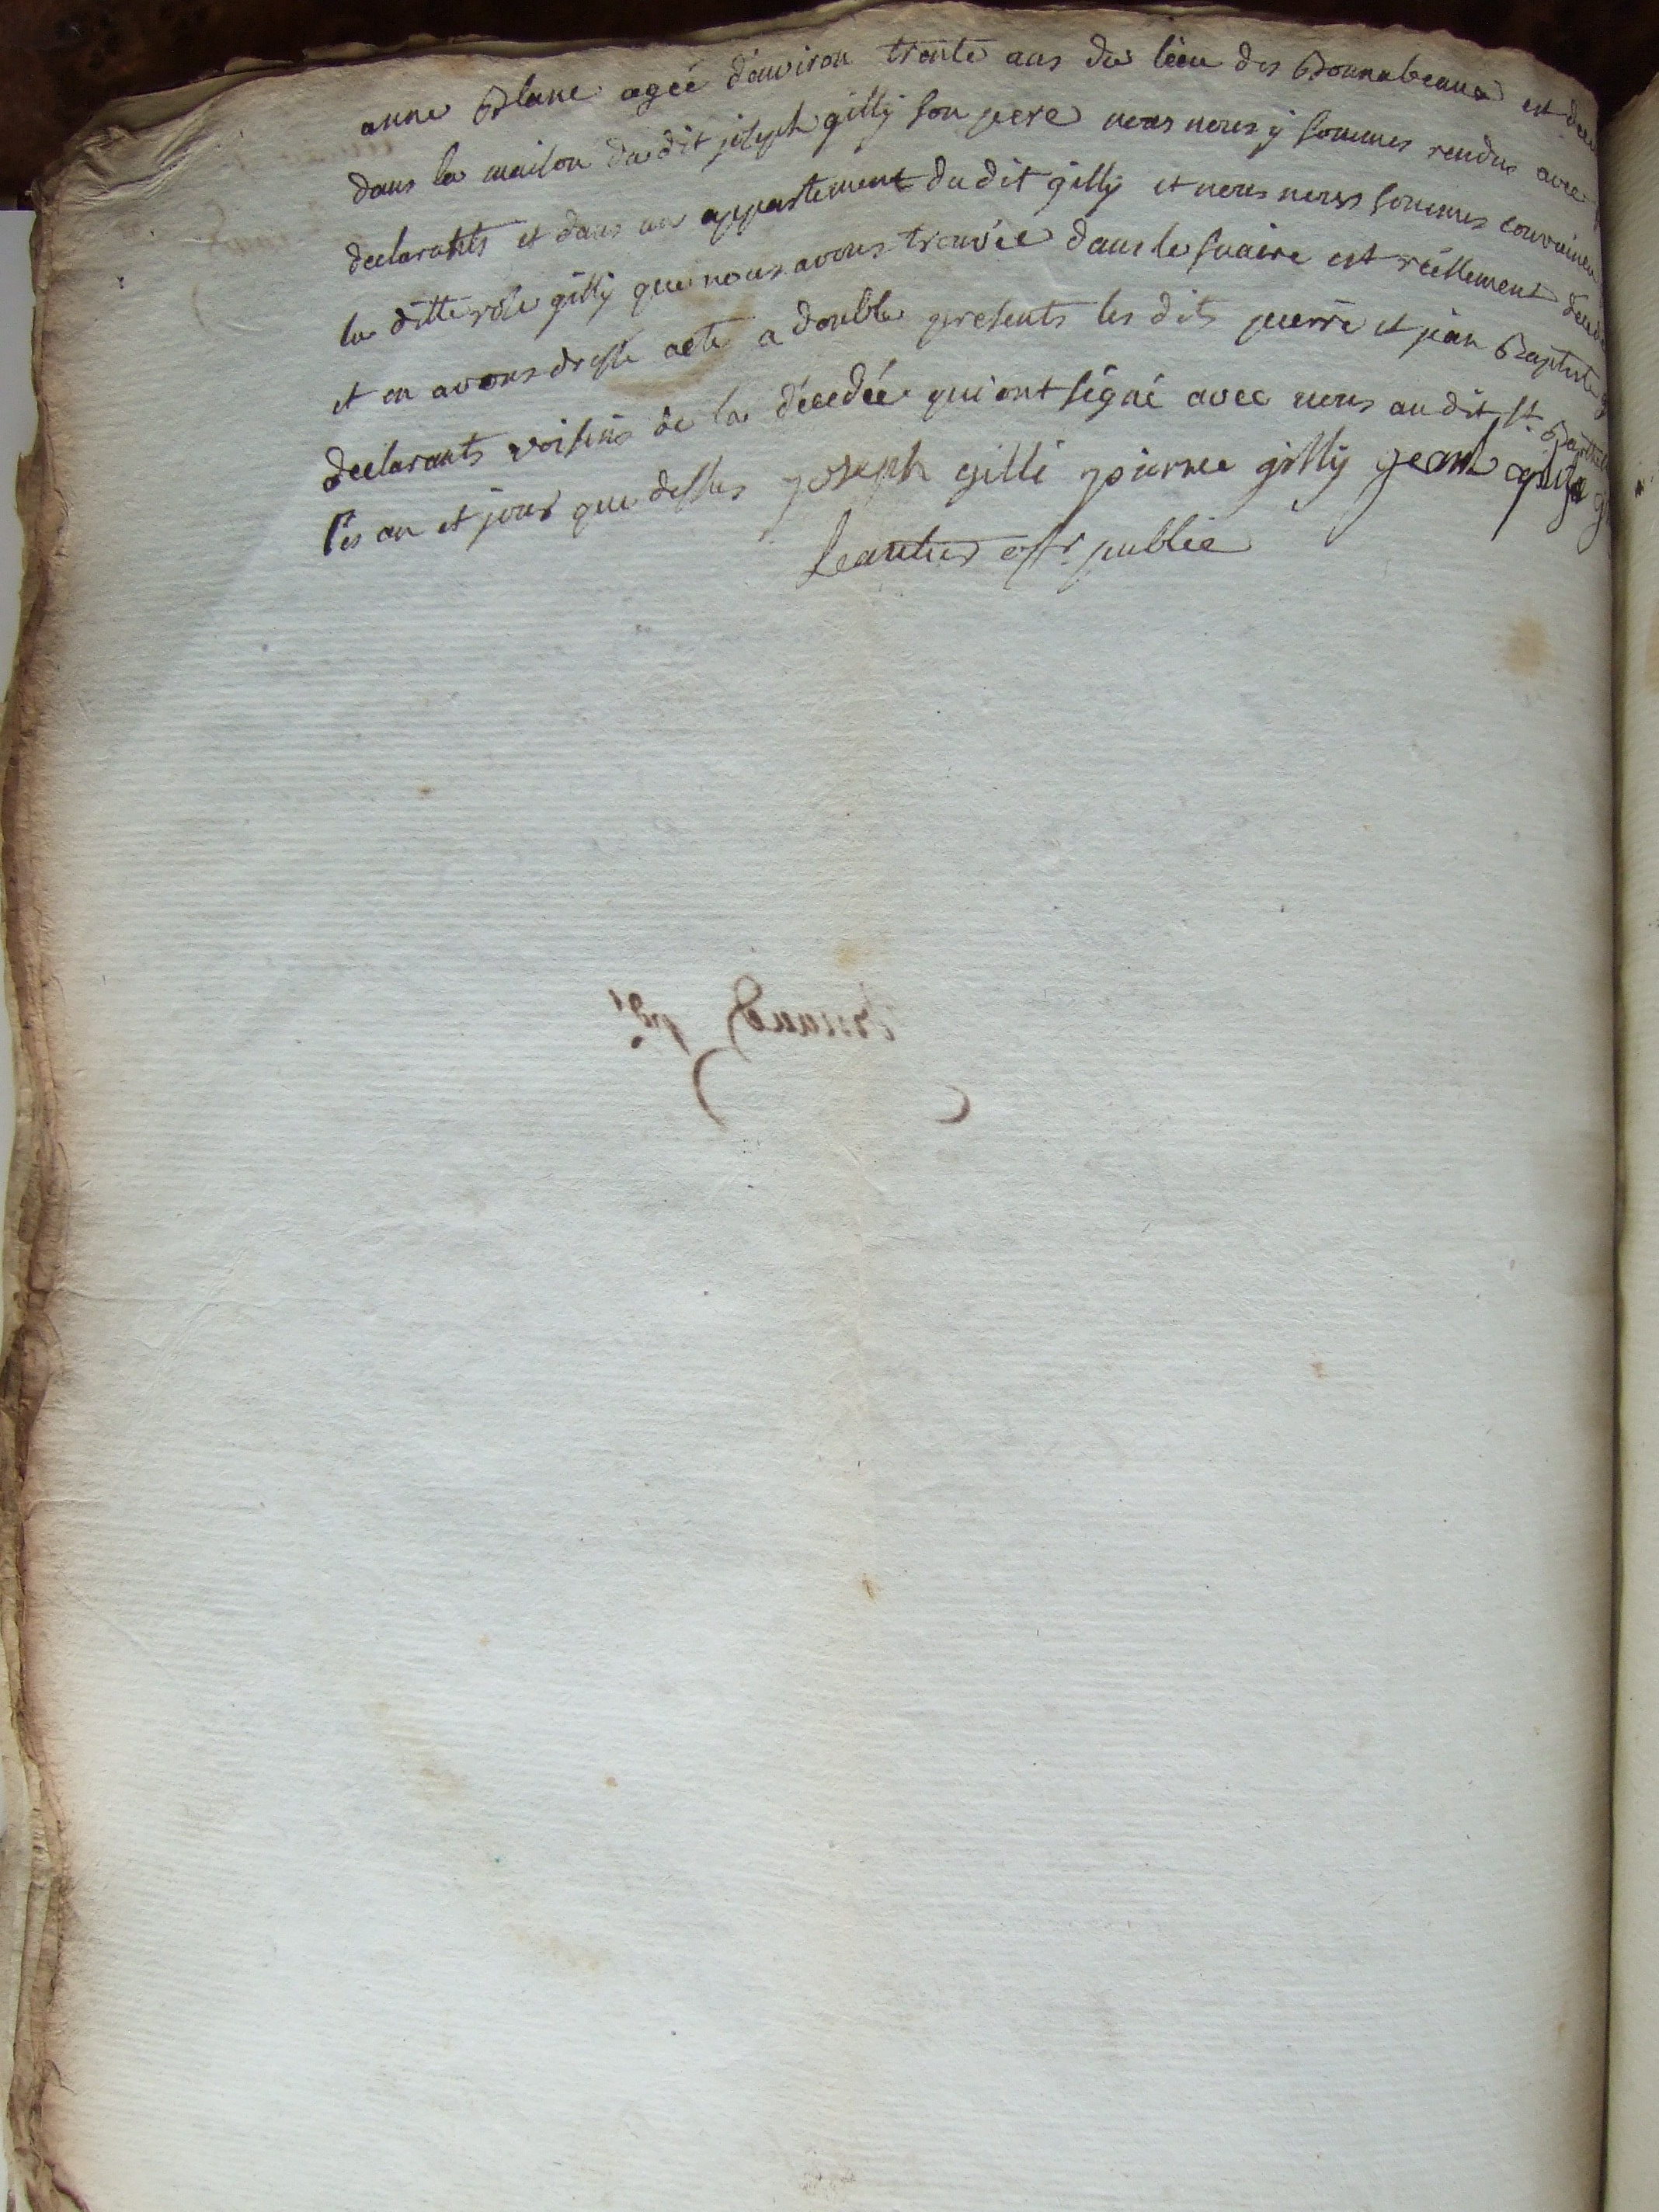 anne Blanc agée d'environ trente ans du lieu des Bonnabeaux est
dans la maison du dit joseph gilly son pere nous nous y sommes rendus avec
declarants et dans un appartement du dit gilly et nous nous sommes convaincu
la ditte rose gilly que nous avons trouvée dans le suaire est réellement
et en avons dressé acte a double presents les dits pierre et jean Baptiste
declarants voisins de la décedée qui ont signé avec nous au dit St
les an et jour que dessus joseph gilli pierre gilly jean
Leautier offr. public